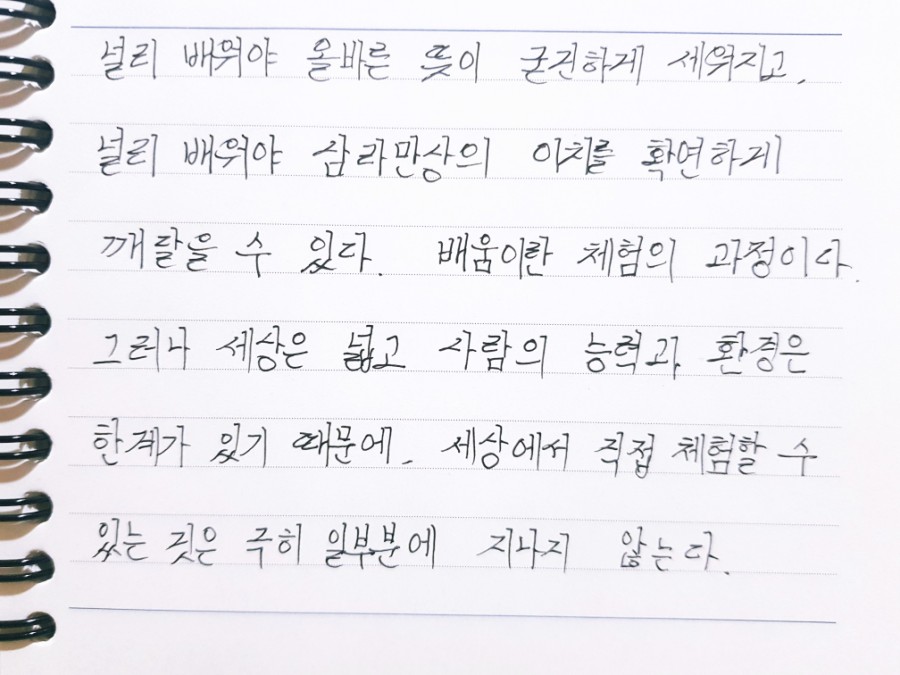 널리 배워야 올바른 뜻이 굳건하게 세워지고,
널리 배워야 삼라만상의 이치를 확연하게
깨달을 수 있다. 배움이란 체험의 과정이다.
그러나 세상은 넓고 사람의 능력과 환경은
한계가 있기 때문에, 세상에서 직접 체험할 수
있는 것은 극히 일부분에 지나지 않는다.